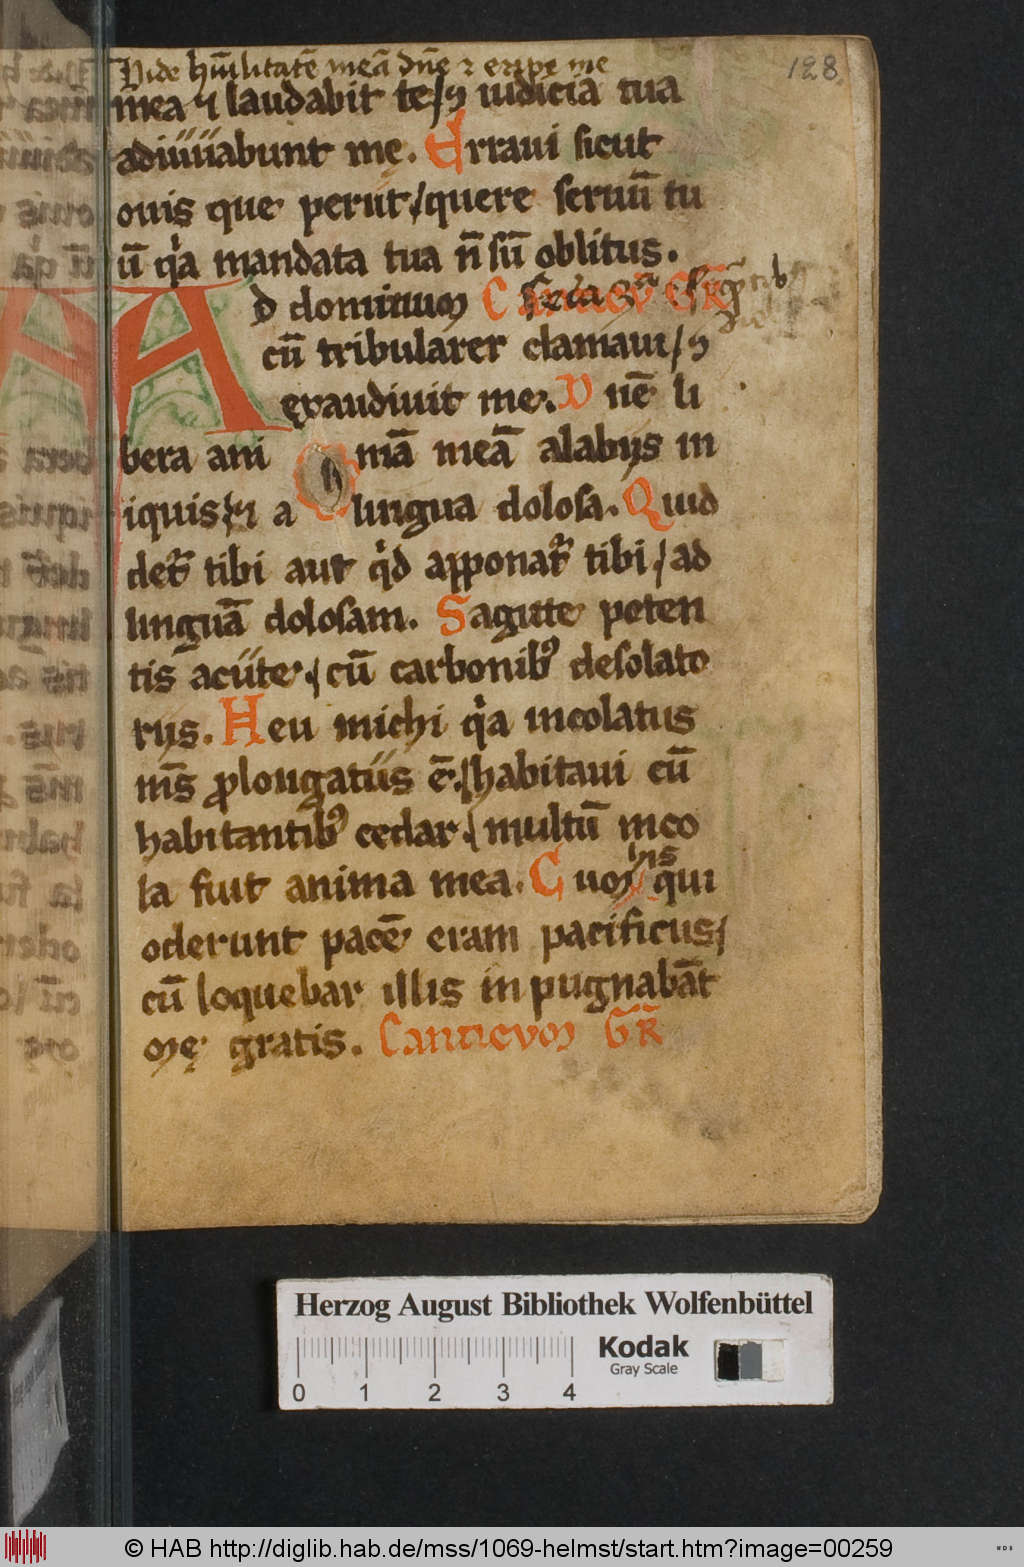 Vide hūilitatē meā dn̄e ⁊ eripe me
128
mea ⁊ laudabit te / ⁊ iudicia tua
adiuuabunt me. Erraui sicut
ouis que periit / quere seruū tu
ū qͥa mandata tua n̄ sū oblitus.
Ad dominum Canticū GR̄
cū tribularer clamaui / ⁊
exaudiuit me. D nē li
bera ani mā meā alabijs in
iquis / ⁊ a lingua dolosa. Quid
det̄ tibi aut qͥd apponat̄ tibi / ad
linguā dolosam. Sagitte poten
tis acute / cū carbonibꝰ desolato
rijs. Heu michi qͥa incolatus
m̄s ꝓlongatus ē / habitaui cū
habitantibꝰ cedar / multū inco
la fuit anima mea. Cum his qui
oderunt pacē eram pacificus /
cū loquebar illis inpugnabāt
me gratis. Canticum GR̄
Herzog August Bibliothek Wolfenbüttel
Kodak
Gray Scale
0 1 2 3 4
© HAB http://diglib.hab.de/mss/1069-helmst/start.htm?image=00259